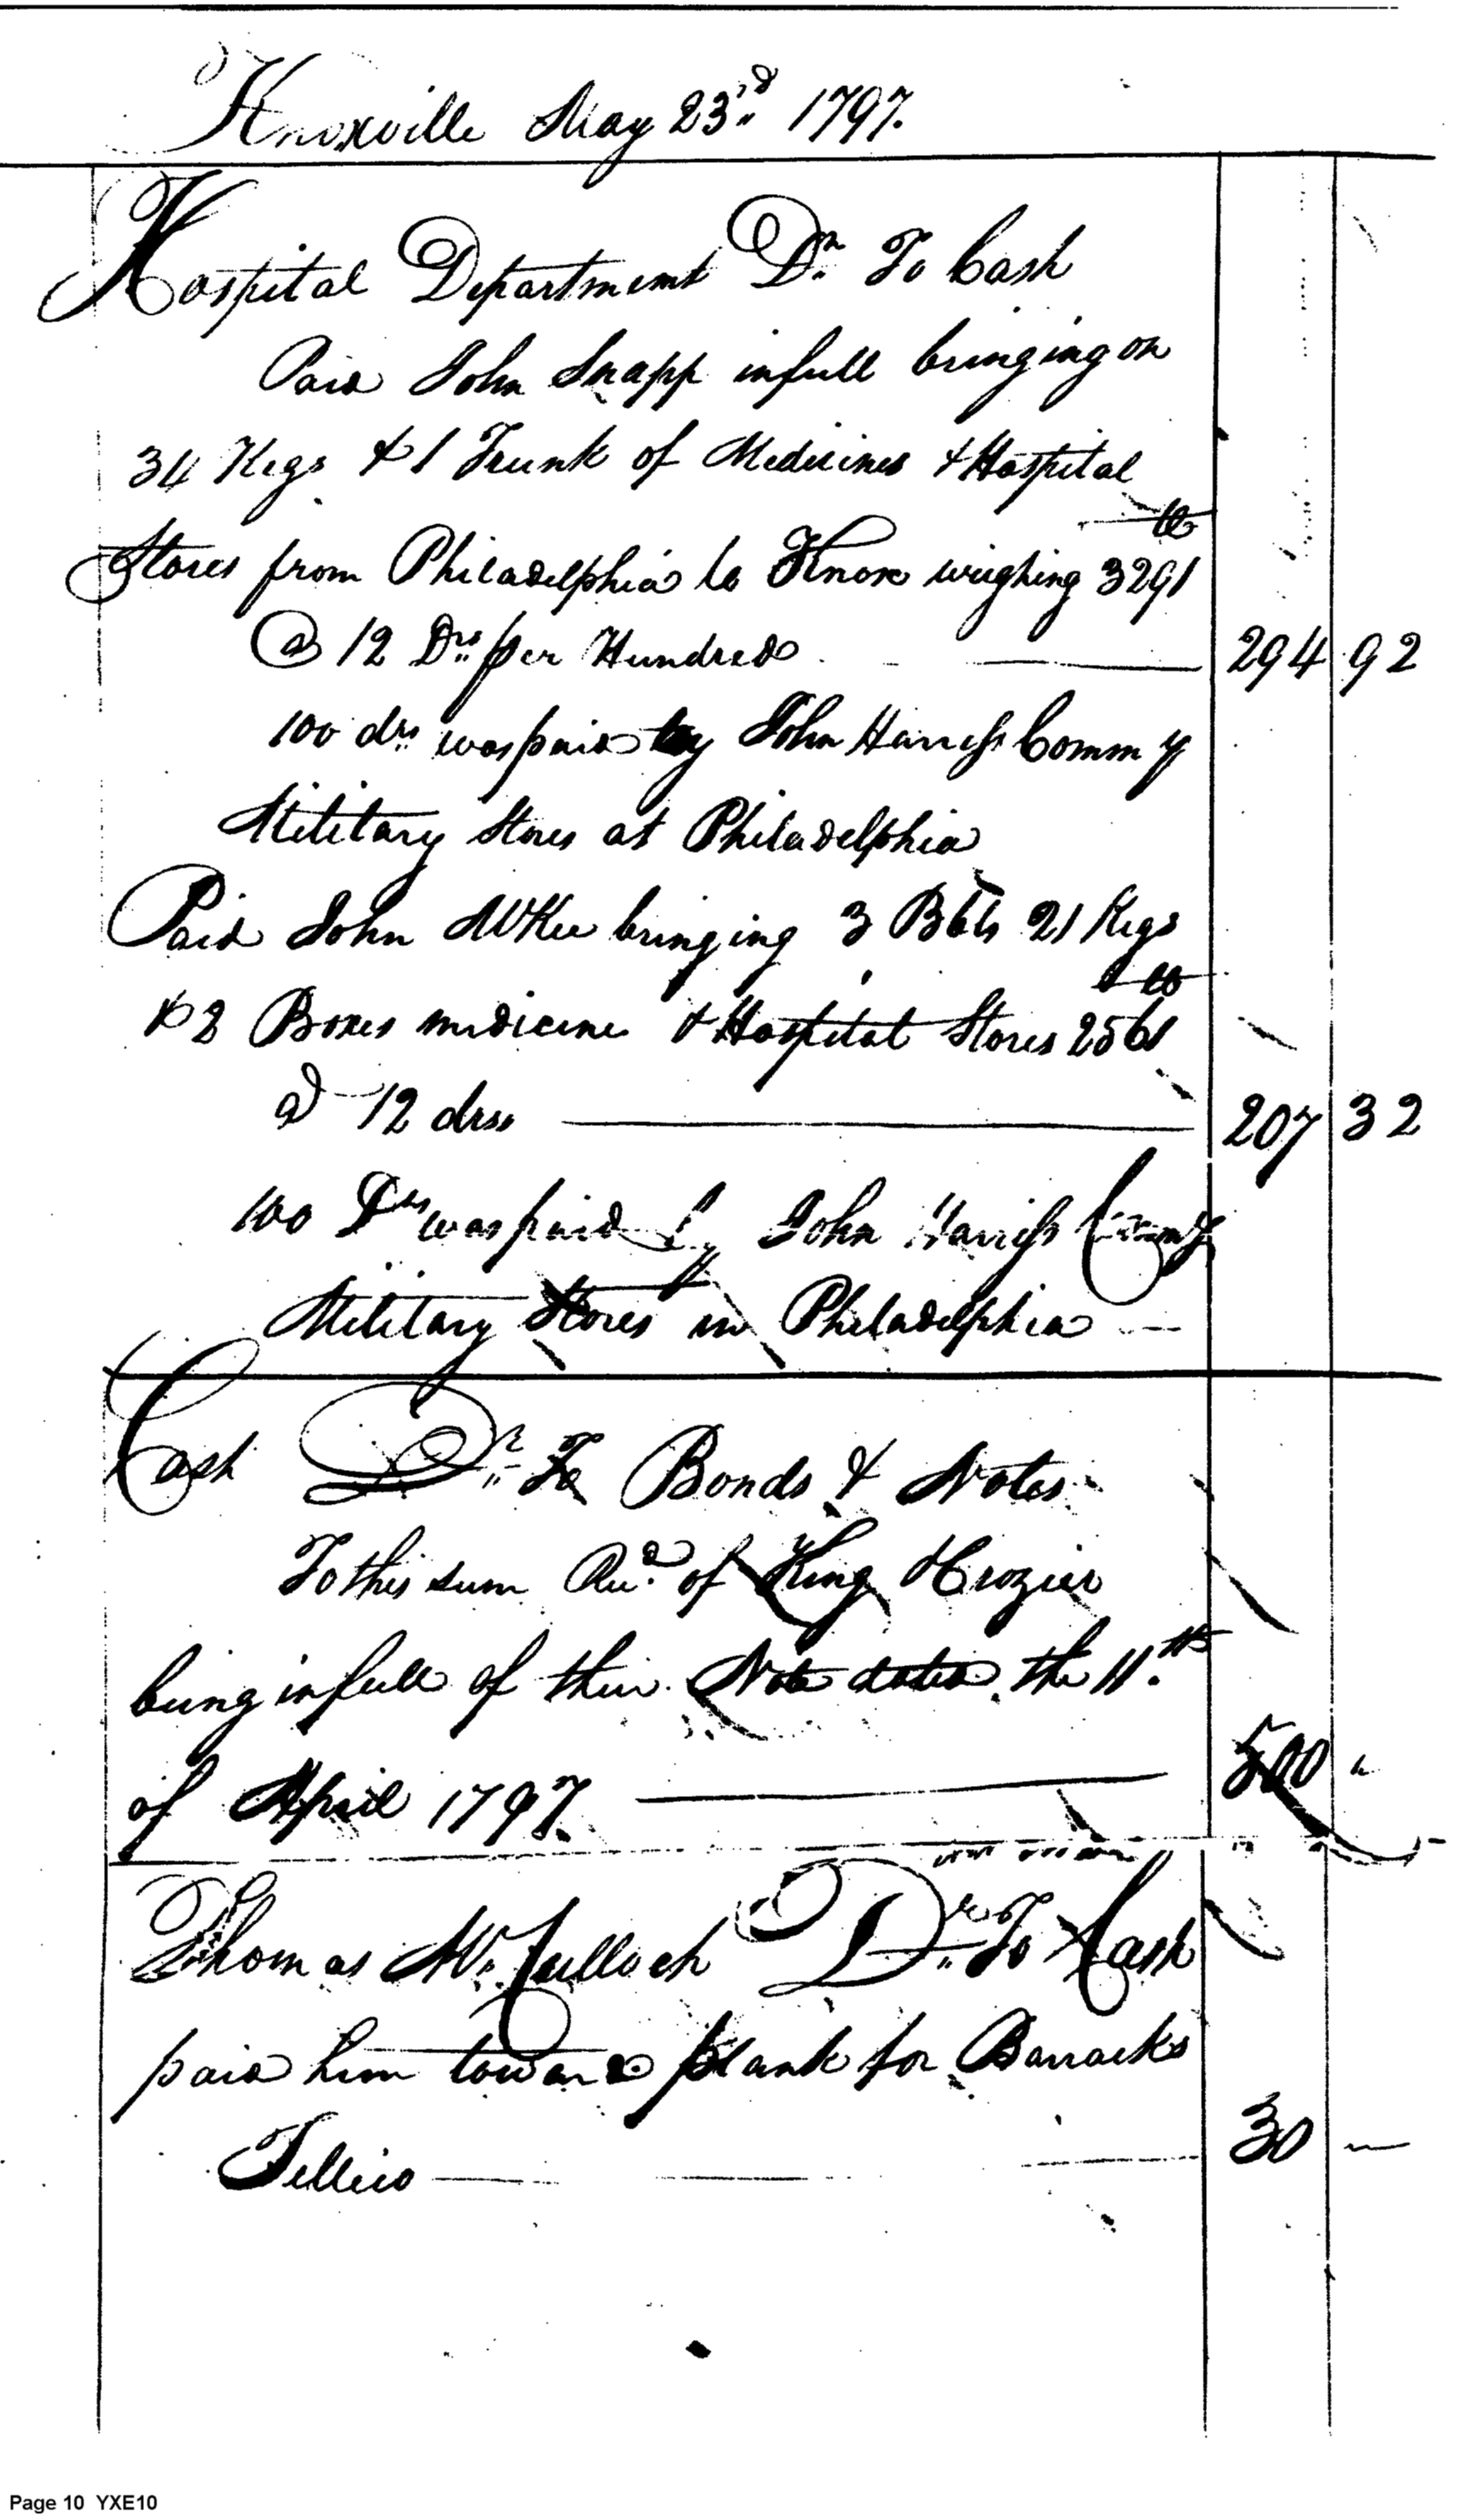 Knoxville May 23.d 1797.
Hospital Department Dr. To Cash
Paid John Snapp in full bringing on
34 Kegs & 1 Trunk of Medicines & Hospital
lb
Stores from Philadelphia to Knox weighing 3291
@ 12 Drs. per Hundred 294 92
100 drs. was paid by John Harriss Commy
Military Stores at Philadelphia
Paid John McKee bringing 3 Bbls 21 Kegs
lb
& 2 Boxes medicine & Hospital Stores 2561
@ 12 drs. 207 32
100 Drs was paid by John Harriss Commy
Military Stores in Philadelphia
Cash Dr. To Bonds & Notes
To this sum Recd. of King & Crozier
being in full of their Note dated the 11.th
of April 1797. 500 "
Thomas Mc. Culloch Dr. To Cash
paid him toward plank for Barracks
Tellico 30 —
Page 10 YXE10